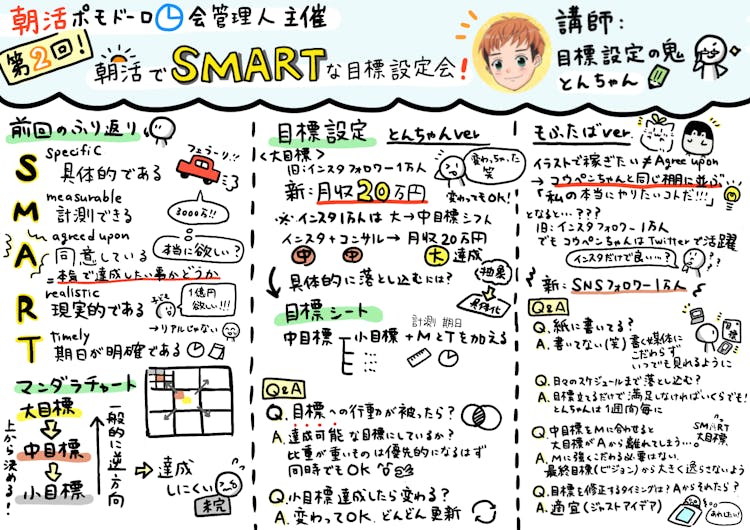 朝活ポモドーロ会管理人主催
第2回!
朝活でSMARTな目標設定会!
講師:
目標設定の鬼
とんちゃん
前回のふり返り
S
specific
具体的である
フェラーリ!!
M
measurable
計測できる
3000万!!
A
agreed upon
同意している
本当に欲しい?
=本気で達成したい事かどうか
R
realistic
現実的である
1億円
欲しい!!!
→リアルじゃない
T
timely
期日が明確である
マンダラチャート
上から決める!
大目標
中目標
小目標
一般的に逆方向
達成
しにくい
未完
目標設定 とんちゃんver
<大目標>
旧:インスタフォロワー1万人
新:月収20万円
変わっちゃった
笑
変わってもOK!
※インスタ1万人は大→中目標にシフト
インスタ+コンサル→月収20万円
中 中 大 達成
具体的に落とし込むには?
抽象
具体化
目標シート
計測 期日
中目標 小目標+MとTも加える
Q&A
Q.目標への行動が被ったら?
A.達成可能な目標にしているか?
比重が重いものは優先的になるはず
同時でもOK
Q.小目標達成したら変わる?
A.変わってOK.どんどん更新
もふたばver
イラストで稼ぎたい≠Agree upon
→コウペンちゃんと同じ棚に並ぶ
「私の本当にやりたいコトだ!!!」
となると…???
旧:インスタフォロワー1万人
でもコウペンちゃんはTwitterで活躍
インスタだけで良い…?
新:SNSフォロワー1万人
Q&A
Q.紙に書いてる?
A.書いてない(笑)書く媒体に
こだわらず
いつでも見れるように
Q.日々のスケジュールまで落とし込む?
A.目標立てるだけで満足しなければいくらでも!
とんちゃんは1週間毎に
Q.中目標もMに合わせると
大目標がAから離れてしまう…
SMART
大目標
A.Mに強くこだわる必要はない
最終目標(ビジョン)から大きく逸らさないよう
Q.目標も修正するタイミングは?Aからそれたら?
A.適宜(ジャストアイデア)